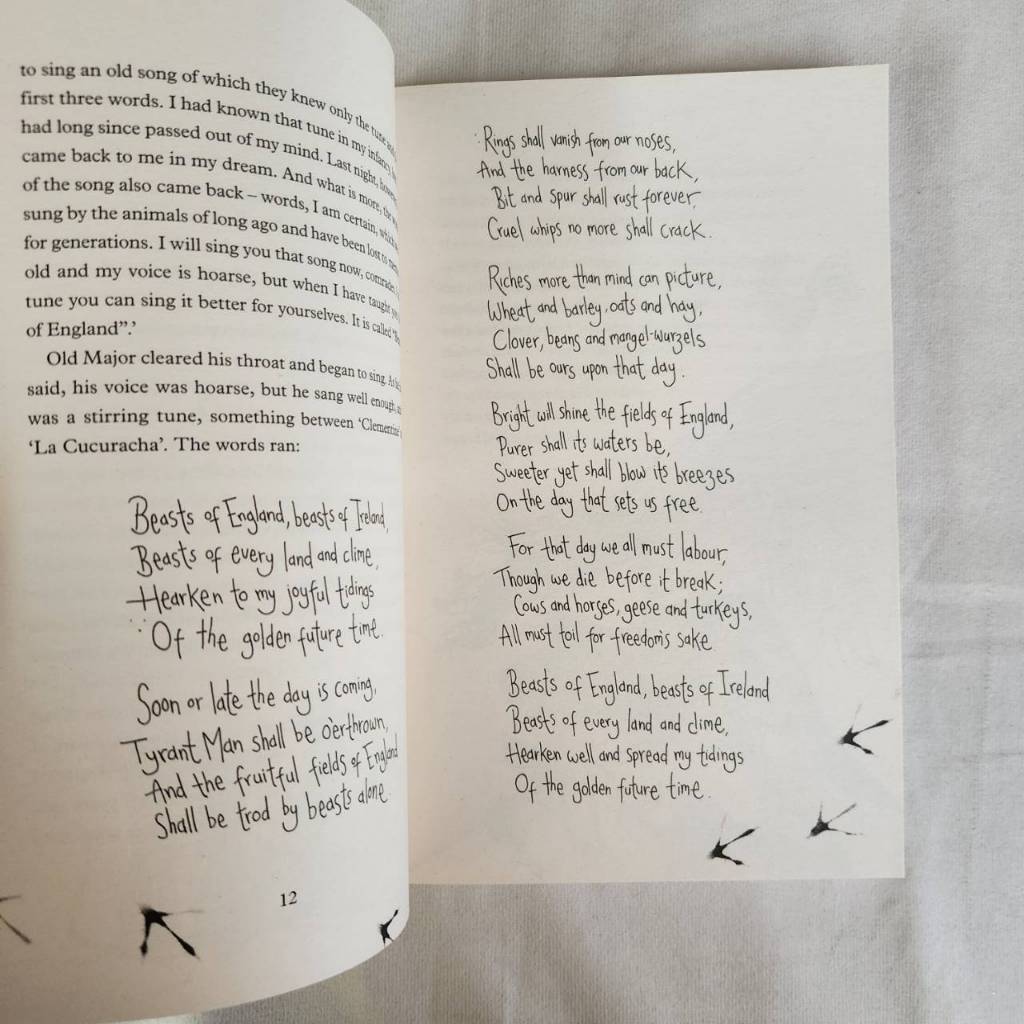 to sing an old song of which they knew only the tune and
first three words. I had known that tune in my infancy,
had long since passed out of my mind. Last night,
came back to me in my dream. And what is more, the
of the song also came back – words, I am certain, which
sung by the animals of long ago and have been lost to
for generations. I will sing you that song now, comrades.
old and my voice is hoarse, but when I have taught you
tune you can sing it better for yourselves. It is called
of England”.’
Old Major cleared his throat and began to sing. As he
said, his voice was hoarse, but he sang well enough,
was a stirring tune, something between ‘Clementine’
‘La Cucuracha’. The words ran:
Beasts of England, beasts of Ireland,
Beasts of every land and clime,
Hearken to my joyful tidings
Of the golden future time.
Soon or late the day is coming,
Tyrant Man shall be o'erthrown,
And the fruitful fields of England
Shall be trod by beasts alone.
12
Rings shall vanish from our noses,
And the harness from our back,
Bit and spur shall rust forever,
Cruel whips no more shall crack.
Riches more than mind can picture,
Wheat and barley, oats and hay,
Clover, beans and mangel-wurzels
Shall be ours upon that day.
Bright will shine the fields of England,
Purer shall its waters be,
Sweeter yet shall blow its breezes
On the day that sets us free.
For that day we all must labour,
Though we die before it break;
Cows and horses, geese and turkeys,
All must toil for freedom's sake.
Beasts of England, beasts of Ireland
Beasts of every land and clime,
Hearken well and spread my tidings
Of the golden future time.